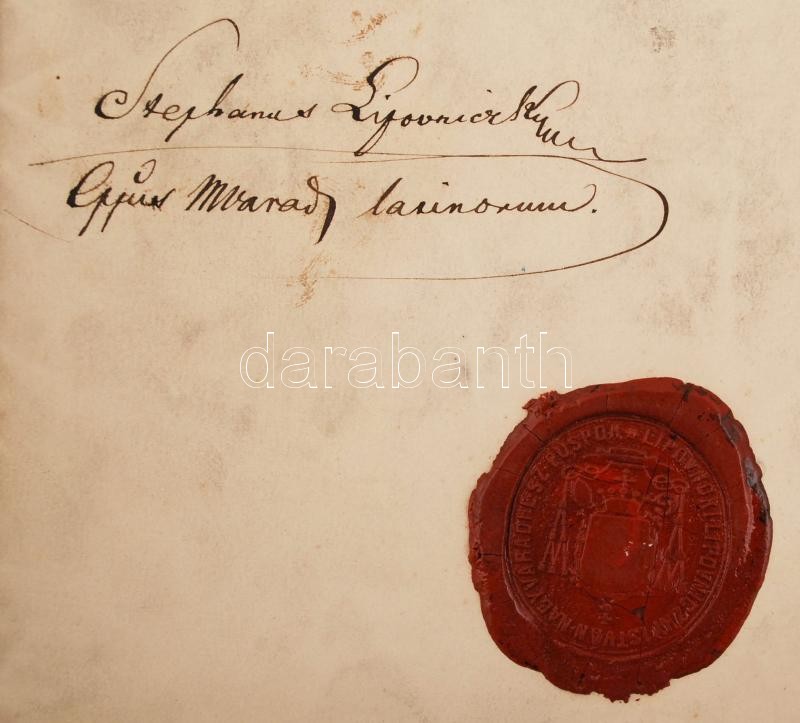 Stephanus Lipovniczky
Eppus MVarad latinorum.
darabanth
LIPOVNOKI LIPOVNICZKY ISTVÁN NAGYVÁRADI L. SZ. PÜSPÖK